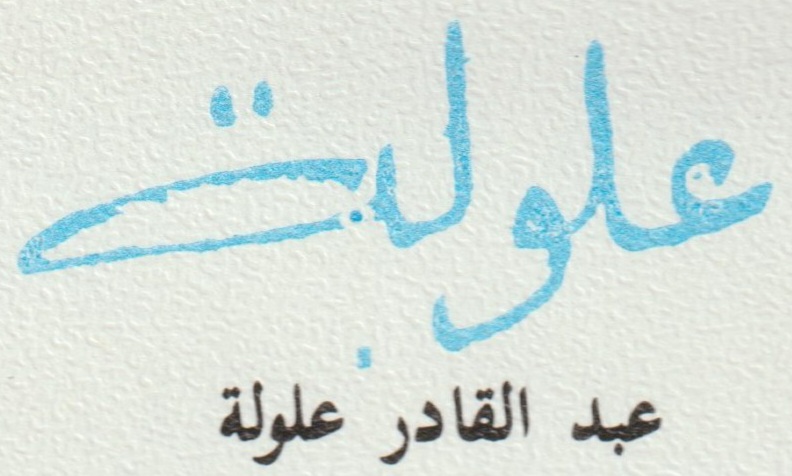 علولة
عبد القادر علولة